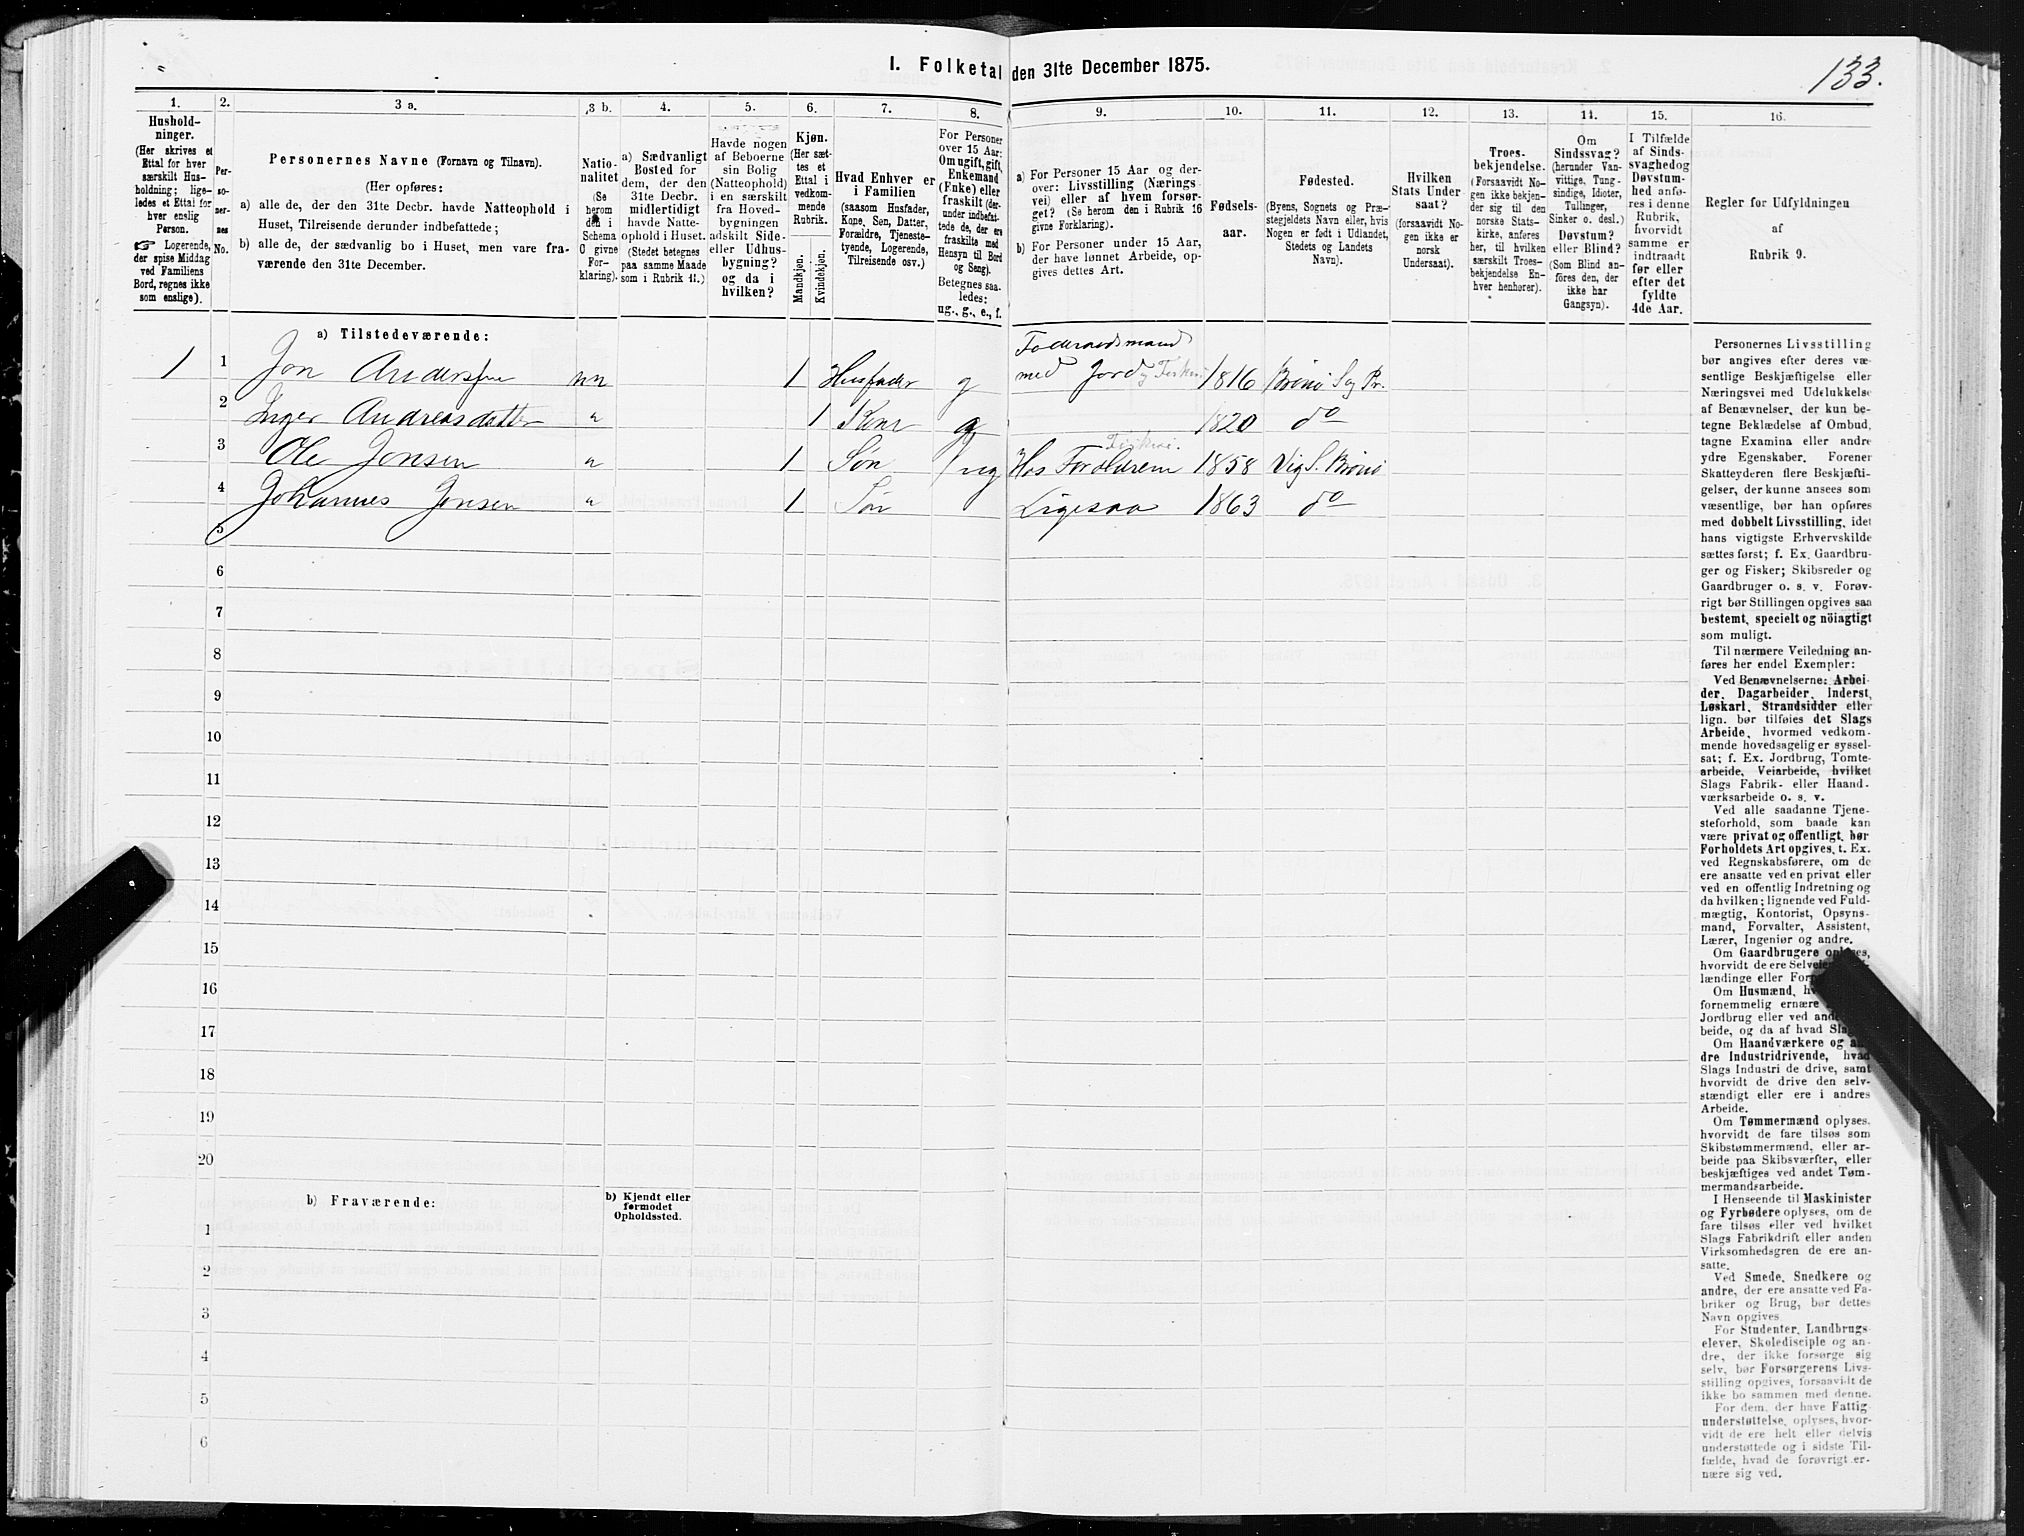 133.
I. Folketal den 31te December 1875.
1.
Hushold-
ninger.
(Her skrives et
Ettal for hver
særskilt Hus-
holdning; lige-
ledes et Ettal for
hver enslig
Person.
☞ Logerende,
der spise Middag
ved Familiens
Bord, regnes ikke
som enslige).
2.
Per-
so-
ner-
nes
No.
3 a.
Personernes Navne (Fornavn og Tilnavn).
(Her opføres:
a) alle de, der den 31te Decbr. havde Natteophold i
Huset, Tilreisende derunder indbefattede;
b) alle de, der sædvanlig bo i Huset, men vare fra-
værende den 31te December.
3 b.
Natio-
nalitet
(Se
herom
den i
Schema
O givne
For-
klaring).
4.
a) Sædvanligt
Bosted for
dem, der den
31te Decbr.
midlertidigt
havde Natte-
ophold i Huset.
(Stedet betegnes
paa samme Maade
som i Rubrik 11.)
5.
Havde nogen
af Beboerne
sin Bolig
(Natteophold)
i en særskilt
fra Hoved-
bygningen
adskilt Side-
eller Udhus-
bygning?
og da i
hvilken?
6.
Kjøn.
(Her sæt-
tes et
Ettal i
vedkom-
mende
Rubrik.
Mandkjøn.
Kvindekjøn.
7.
Hvad Enhver er
i Familien
(saasom Husfader,
Kone, Søn, Datter,
Forældre, Tjeneste-
tyende, Logerende,
Tilreisende osv.)
8.
For Personer
over 15 Aar:
Om ugift, gift,
Enkemand
(Enke) eller
fraskilt (der-
under indbefat-
tede de, der ere
fraskilte med
Hensyn til Bord
og Seng).
Betegnes saa-
ledes:
ug., g., e., f.
9.
a) For Personer 15 Aar og der-
over: Livsstilling (Nærings-
vei) eller af hvem forsør-
get? (Se herom den i Rubrik 16
givne Forklaring).
b) For Personer under 15 Aar,
der have lønnet Arbeide, op-
gives dettes Art.
10.
Fødsels-
aar.
11.
Fødested.
(Byens, Sognets og Præ-
stegjeldets Navn eller, hvis
Nogen er født i Udlandet,
Stedets og Landets
Navn).
12.
Hvilken
Stats Under-
saat?
(forsaavidt No-
gen ikke er
norsk
Undersaat).
13.
Troes-
bekjendelse.
(Forsaavidt No-
gen ikke bekjen-
der sig til den
norske Stats-
kirke, anføres
her, til hvilken
særskilt Troes-
bekjendelse En-
hver henhører).
14.
Om
Sindssvag?
(herunder Van-
vittige, Tung-
sindige, Idioter,
Tullinger,
Sinker o. desl.)
Døvstum?
eller Blind?
(Som Blind an-
føres den, der
ikke har
Gangsyn).
15.
I Tilfælde
af Sinds-
svaghed og
Døvstum-
hed anfø-
res i denne
Rubrik,
hvorvidt
samme er
indtraadt
før eller
efter det
fyldte
4de Aar.
16.
Regler for Udfyldningen
af
Rubrik 9.
a) Tilstedeværende:
1 1 Jon Andersen nn 1 Husfader g Føderaadsmand
med Jord, Fiskeri 1816 Brønø Sg Pr.
2 Inger Andreasdatter „ 1 Kone g 1820 do
3 Ole Jonsen „ 1 Søn ug Hos Forældrene Fiskeri. 1858 Vig S. Brønø
4 Johannes Jonsen „ 1 Søn Ligesaa 1863 do
5
6
7
8
9
10
11
12
13
14
15
16
17
18
19
20
b) Fraværende:
b) Kjendt eller
formodet
Opholdssted.
1
2
3
4
5
6
Personernes Livsstilling
bør angives efter deres væ-
sentlige Beskjæftigelse eller
Næringsvei med Udelukkelse
af Benævnelser, der kun be-
tegne Beklædelse af Ombud,
tagne Examina eller andre
ydre Egenskaber. Forener
Skatteyderen flere Beskjæfti-
gelser, der kunne ansees som
væsentlige, bør han opføres
med dobbelt Livsstilling, idet
hans vigtigste Erhvervskilde
sættes først; f. Ex. Gaardbru-
ger og Fisker; Skibsreder og
Gaardbruger o. s. v. Forøv-
rigt bør Stillingen opgives saa
bestemt, specielt og nöiagtigt
som muligt.
Til nærmere Veiledning an-
føres her endel Exempler:
Ved Benævnelserne: Arbei-
der, Dagarbeider, Inderst,
Løskarl, Strandsidder eller
lign. bør tilføies det Slags
Arbeide, hvormed vedkom-
mende hovedsagelig er syssel-
sat; f. Ex. Jordbrug, Tomte-
arbeide, Veiarbeide, hvilket
Slags Fabrik- eller Haand-
værksarbeide o. s. v.
Ved alle saadanne Tjene-
steforhold, som baade kan
være privat og offentligt, bør
Forholdets Art opgives, t. Ex.
ved Regnskabsførere, om de
ere ansatte ved en privat eller
ved en offentlig Indretning og
da hvilken; lignende ved Fuld-
mægtig, Kontorist, Opsyns-
mand, Forvalter, Assistent,
Lærer, Ingeniør og andre.
Om Gaardbrugere oplyses,
hvorvidt de ere Selveiere,
lændinge eller
Om Husmænd,
fornemmelig ernære
Jordbrug eller ved
beide, og da af hvad
Om Haandværkere og an-
dre Industridrivende, hvad
Slags Industri de drive, samt
hvorvidt de drive den selv-
stændigt eller ere i andres
Arbeide.
Om Tømmermænd oplyses,
hvorvidt de fare tilsøs som
Skibstømmermænd, eller ar-
beide paa Skibsværfter, eller
beskjæftiges ved andet Tøm-
mermandsarbeide.
I Henseende til Maskinister
og Fyrbødere oplyses, om de
fare tilsøs eller ved hvilket
Slags Fabrikdrift eller anden
Virksomhedsgren de ere an-
satte.
Ved Smede, Snedkere og
andre, der ere ansatte ved Fa-
briker og Brug, bør dettes
Navn opgives
For Studenter, Landbrugs-
elever, Skoledisciple og an-
dre, der ikke forsørge sig
selv, bør Forsørgerens Livs-
stilling opgives, forsaavidt de
ikke bo sammen med denne.
For dem, der have Fattig-
understøttelse, oplyses, hvor-
vidt de ere helt eller delvis
understøttede og i sidste Til-
fælde, hvad de forøvrigt er-
nære sig ved.